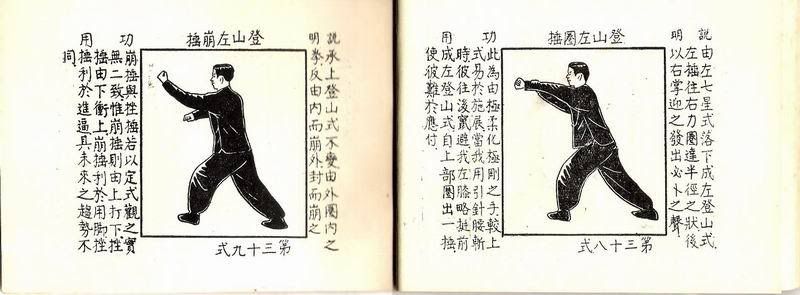 登山左圈捶
說由左七星式落下成左登山式
左捶往右力圈達半徑之狀後
明以右掌迎之發出必卜之聲
功此為由極柔化極剛之手較上
式易於施展當我用引針腰斬
時彼往後竄避我左膝略挺前
用成左登山式自上部圈出一捶
使彼難於應付
第三十八式
登山左崩捶
說承上登山式不變由外圈內之
明拳反由內而崩外封而崩之
功崩捶與挫捶若以定式觀之實
無二致惟崩捶則由上打下挫
捶由下衝上崩捶利於用腳挫
用捶利於進逼且未來之趨勢不
同
第三十九式